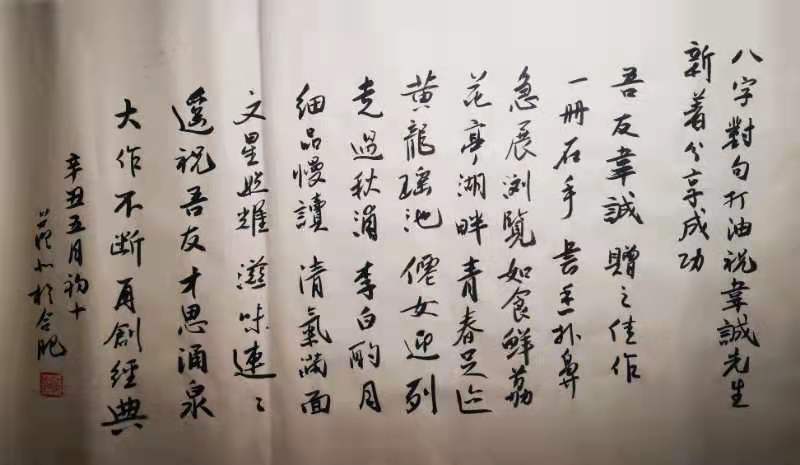 八字對句打油祝韋誠先生
新著分享成功
吾友韋誠 贈之佳作
一冊在手 書香扑鼻
急展浏覽 如食鮮荔
花亭湖畔 青春足迹
黄龍瑶池 僊女迎列
走過秋浦 李白酌月
细品慢讀 清氣满面
文星照耀 滋味連々
遥祝吾友 才思涌泉
大作不断 再創經典
辛丑五月初十
於合肥